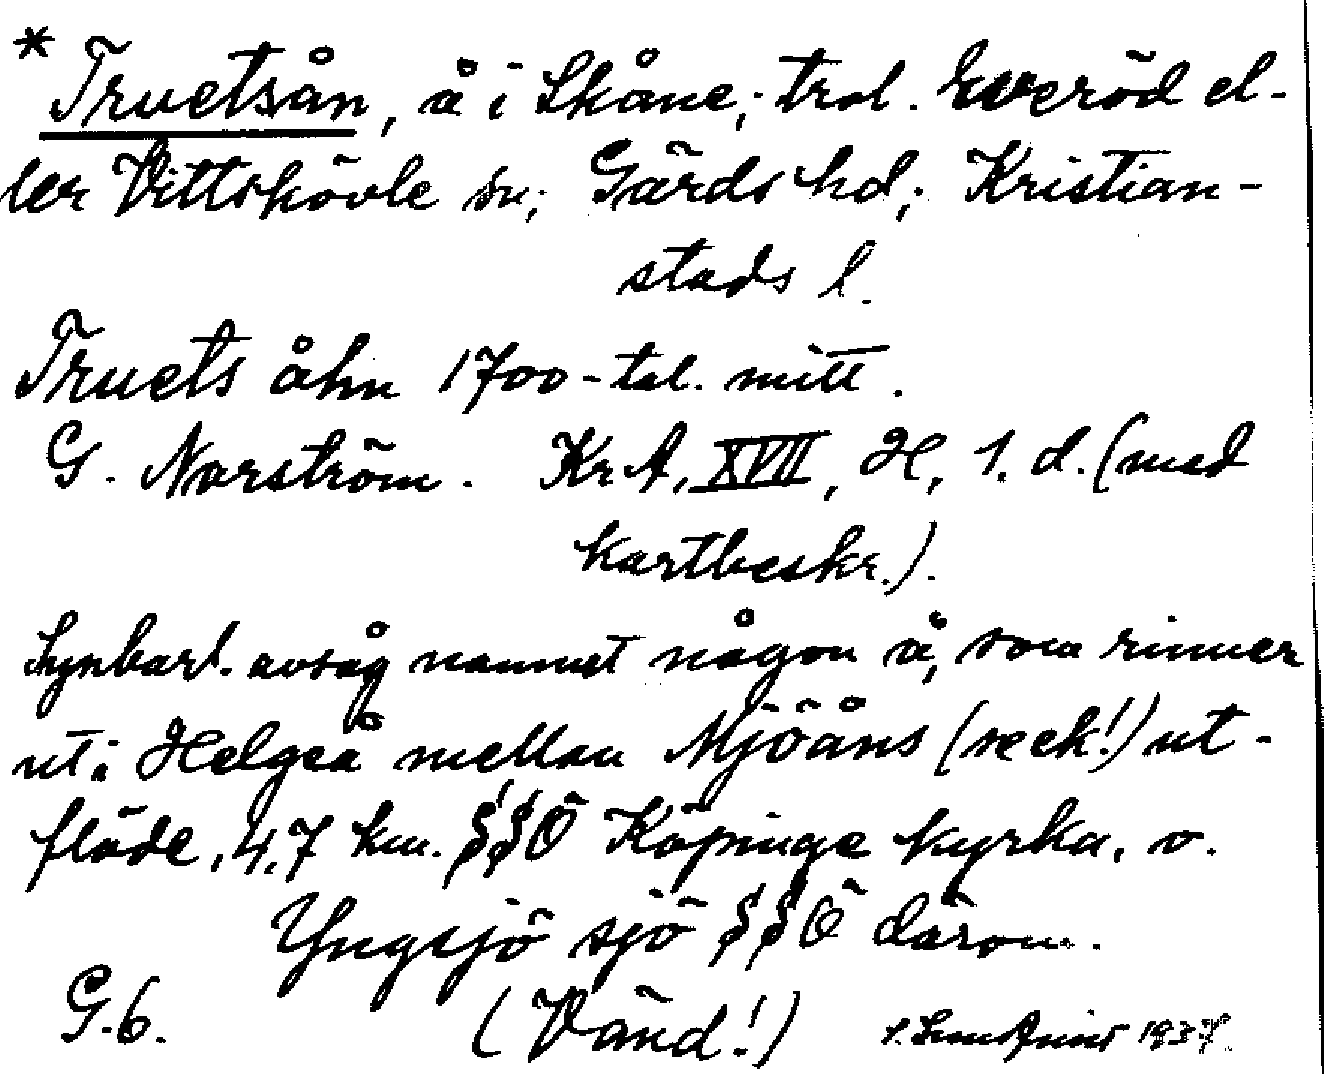 * Truetsån, å i Skåne; trol. Everöd el-
ler Vittskövle sn; Gärds hd; Kristian-
stads l.
Truets åhn 1700-tal. mitt.
G. Norström. KrA, XVII, H, 1. d. (med
kartbeskr.).
Synbarl. avsåg namnet någon å, som rinner
ut i Helgeå mellan Mjöåns (se ek!) ut-
flöde, 4,7 km. SSÖ Köpinge kyrka, o.
Yngsjö sjö SSÖ därom.
G.6. (Vänd!) 1937.